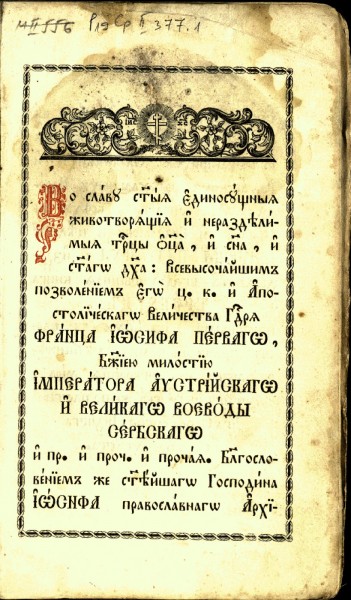 Р19 Ср II 377.1
Во сла́ву ст҃ы́ѧ Є҆диносꙋ́щныѧ
животворѧ́щїѧ и҆ нераздѣ́ли-
мыѧ трⷪ҇цы ѻ҆ц҃а̀, и҆ сн҃а, и҆
ст҃а́гѡ дх҃а: Всевысоча́йшимъ
позволе́нїемъ є҆гѡ̀ ц. к. и҆ А҆по-
сто́лїческагѡ Вели́чества Гдⷭ҇рѧ
ФРА́НЦА І҆Ѡ́СИФА ПЕ́РВАГѠ,
Бж҃їею ми́лостїю
И҆МПЕРА́ТОРА А҆ѴСТРІ́ЙСКАГѠ
И҆ ВЕЛИ́КАГѠ ВОЕВО́ДЫ
СЕ́РБСКАГѠ
и҆ пр. и҆ про́ч. и҆ про́чаѧ. Бл҃гослове-
ве́нїемъ же ст҃ѣ́йшагѡ Господи́на
І҆Ѡ́СИФА правосла́внагѡ А҆рхї-